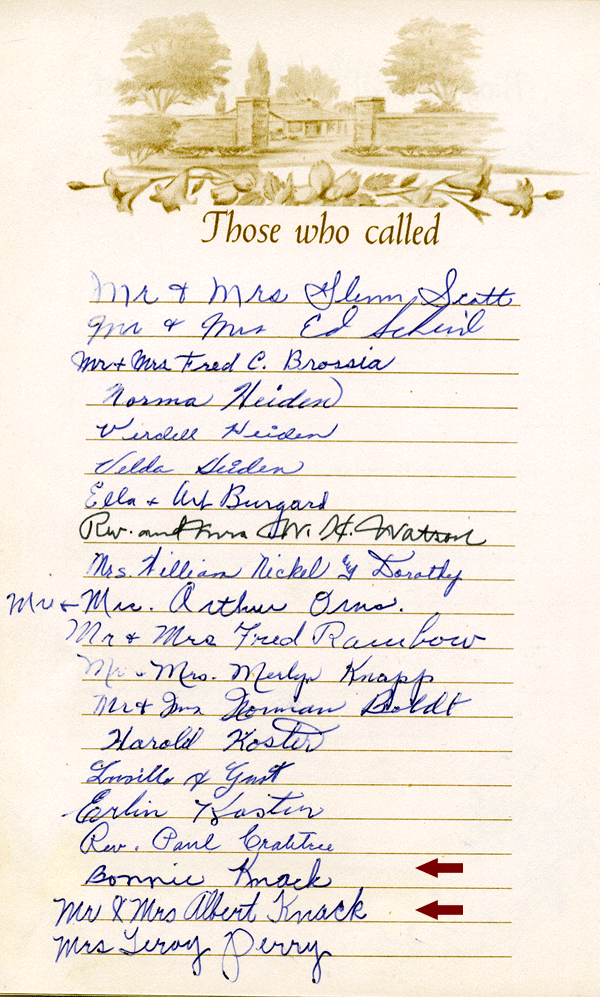 Those who called
Mr & Mrs Glenn Scott
Mr & Mrs Ed Scheid
Mr & Mrs Fred C. Brossia
Norma Heiden
Verdell Heiden
Velda Heiden
Ella & Art Burgard
Rev. and Mrs W. H. Watson
Mrs. William Nickel & Dorothy
Mr & Mrs. Arthur Orns.
Mr & Mrs Fred Rainbow
Mr & Mrs. Merlyn Knapp
Mr & Mrs Norman Boldt
Harold Koster
Lucille & Gust
Erlin Koster
Rev. Paul Crabtree
Bonnie Knack
Mr & Mrs Albert Knack
Mrs Leroy Perry